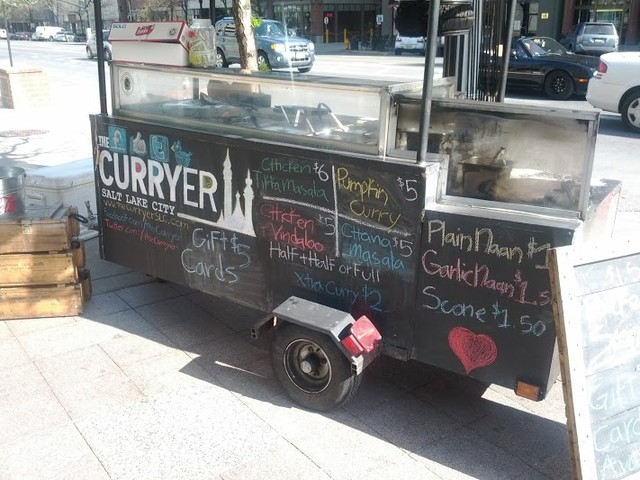 THE
CURRYER
SALT LAKE CITY
www.thecurryerSLC.com
Gift $5
Cards
Chicken $6
Tikka Masala
Pumpkin $5
Curry
Chicken $5
Vindaloo
Chana $5
Masala
Half + Half or Full
Xtra Curry $2
Plain Naan $1
Garlic Naan $1.5
Scone $1.50
Gift
Card